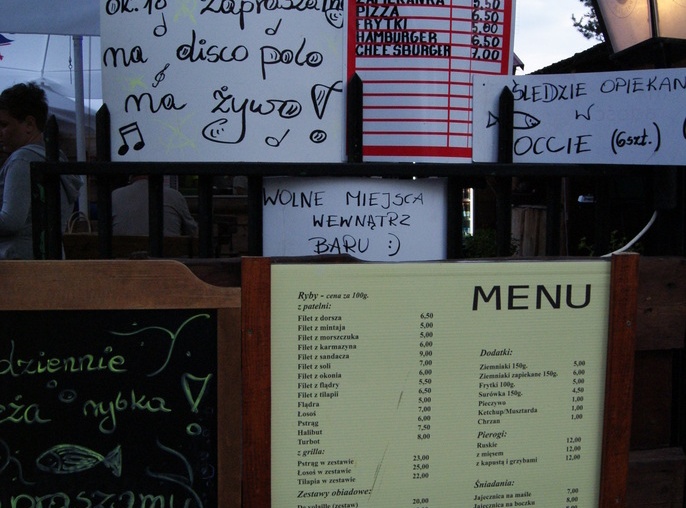 ok. 18 zapraszamy
na disco polo
na żywo!
ZAPIEKANKA 5.50
PIZZA 6.50
FRYTKI 5.00
HAMBURGER 6.50
CHEESBURGER 7.00
ŚLEDZIE OPIEKAN
W
OCCIE (6szt.)
WOLNE MIEJSCA
WEWNĄTRZ
BARU :)
dziennie
eża rybka!
apraszamy
MENU
Ryby - cena za 100g.
z patelni:
Filet z dorsza 6,50
Filet z mintaja 5,00
Filet z morszczuka 5,00
Filet z karmazyna 6,00
Filet z sandacza 9,00
Filet z soli 7,00
Filet z okonia 6,00
Filet z flądry 5,50
Filet z tilapii 6,50
Flądra 5,00
Łosoś 7,00
Pstrąg 6,00
Halibut 7,50
Turbot 8,00
z grilla:
Pstrąg w zestawie 23,00
Łosoś w zestawie 25,00
Tilapia w zestawie 22,00
Zestawy obiadowe:
De volaille (zestaw) 20,00
Dodatki:
Ziemniaki 150g. 5,00
Ziemniaki zapiekane 150g. 6,00
Frytki 100g. 5,00
Surówka 150g. 4,50
Pieczywo 1,00
Ketchup/Musztarda 1,00
Chrzan 1,00
Pierogi:
Ruskie 12,00
z mięsem 12,00
z kapustą i grzybami 12,00
Śniadania:
Jajecznica na maśle 7,00
Jajecznica na boczku 8,00